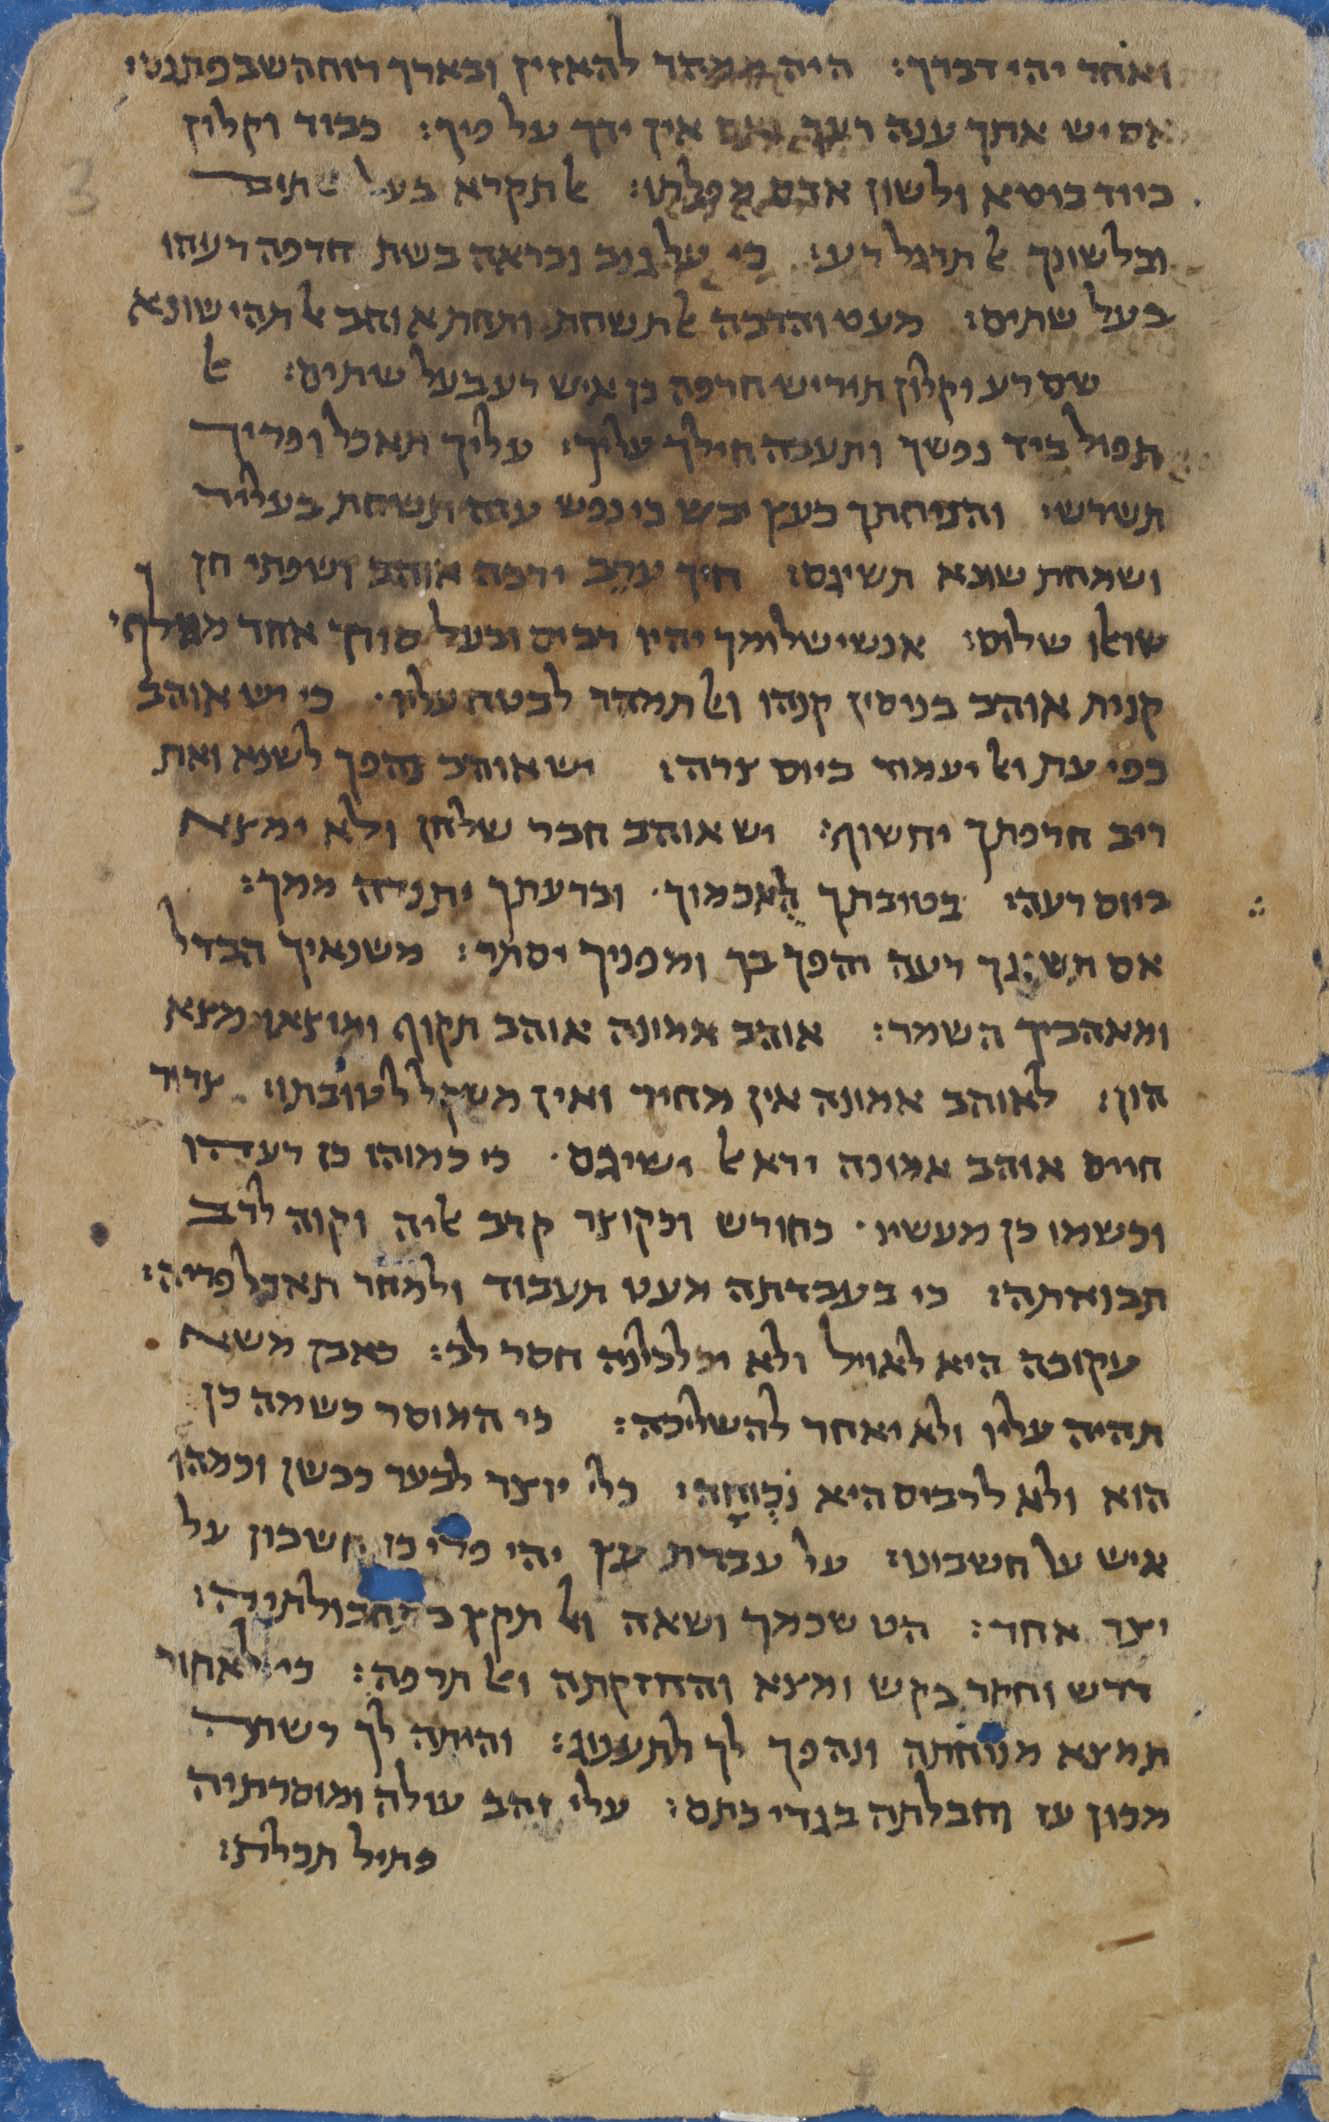 ואחר יהי דברך: היה ממהר להאזין ובארך רוח השב פתגם:
אם יש אתך ענה רעך ואם אין ידך על פיך: כבוד וקלון
ביוד בוטא ולשון אדם מפלתו: אל תקרא בעל שתים
ובלשונך אל תרגל רע: כי על גנב נבראה בשת חרפה רעהו
בעל שתים: מעט והרבה אל תשחת ותחת אוהב אל תהי שונא
שם רע וקלון תוריש חרפה כן איש רע בעל שתים: אל
תפול ביד נפשך ותעבה חילך עליך: עליך תאכל ופריך
תשרש והניחתך כעץ יבש: כי נפש עזה תשחת בעליה
ושמחת שונא תשיגם: חיך ערב ירבה אוהב ושפתי חן
שואלו שלום: אנשי שלומך יהיו רבים ובעל סודך אחד מאלף:
קנית אוהב בניסין קנהו ואל תמהר לבטח עליו: כי יש אוהב
כפי עת ואל יעמוד ביום צרה: יש אוהב נהפך לשנא ואת
ריב חרפתך יחשוף: יש אוהב חבר שלחן ולא ימצא
ביום רעה: בטובתך הוא כמוך וברעתך יתנדה ממך:
אם תשיגך רעה יהפך בך ומפניך יסתר: משנאיך הבדל
ומאהביך השמר: אוהב אמונה אוהב תקוף ומוצאו מצא
הון: לאוהב אמונה אין מחיר ואין משקל לטובתו: צרור
חיים אוהב אמונה ירא אל ישיגם: כי כמוהו כן רעהו
וכשמו כן מעשיו: כחורש וכקוצר קרב אליה וקוה לרב
תבואתה: כי בעבדתה מעט תעבוד ולמחר תאכל פריה:
עקובה היא לאויל ולא יכלכלנה חסר לב: כאבן משא
תהיה עליו ולא יאחר להשליכה: כי המוסר כשמה כן
הוא ולא לרבים היא נכוחה: כלי יוצר לבער כבשן וכמהו
איש על חשבונו: על עבדת עץ יהי פרי כן חשבון על
יצר אחד: הט שכמך ושאה ואל תקץ בתחבולתיה:
דרש וחקר בקש ומצא והחזקתה ואל תרפה: כי לאחור
תמצא מנוחתה ונהפך לך לתענוג: והיתה לך רשתה
מכון עז וחבלתה בגדי כתם: עלי זהב עולה ומוסרתיה
פתיל תכלת: